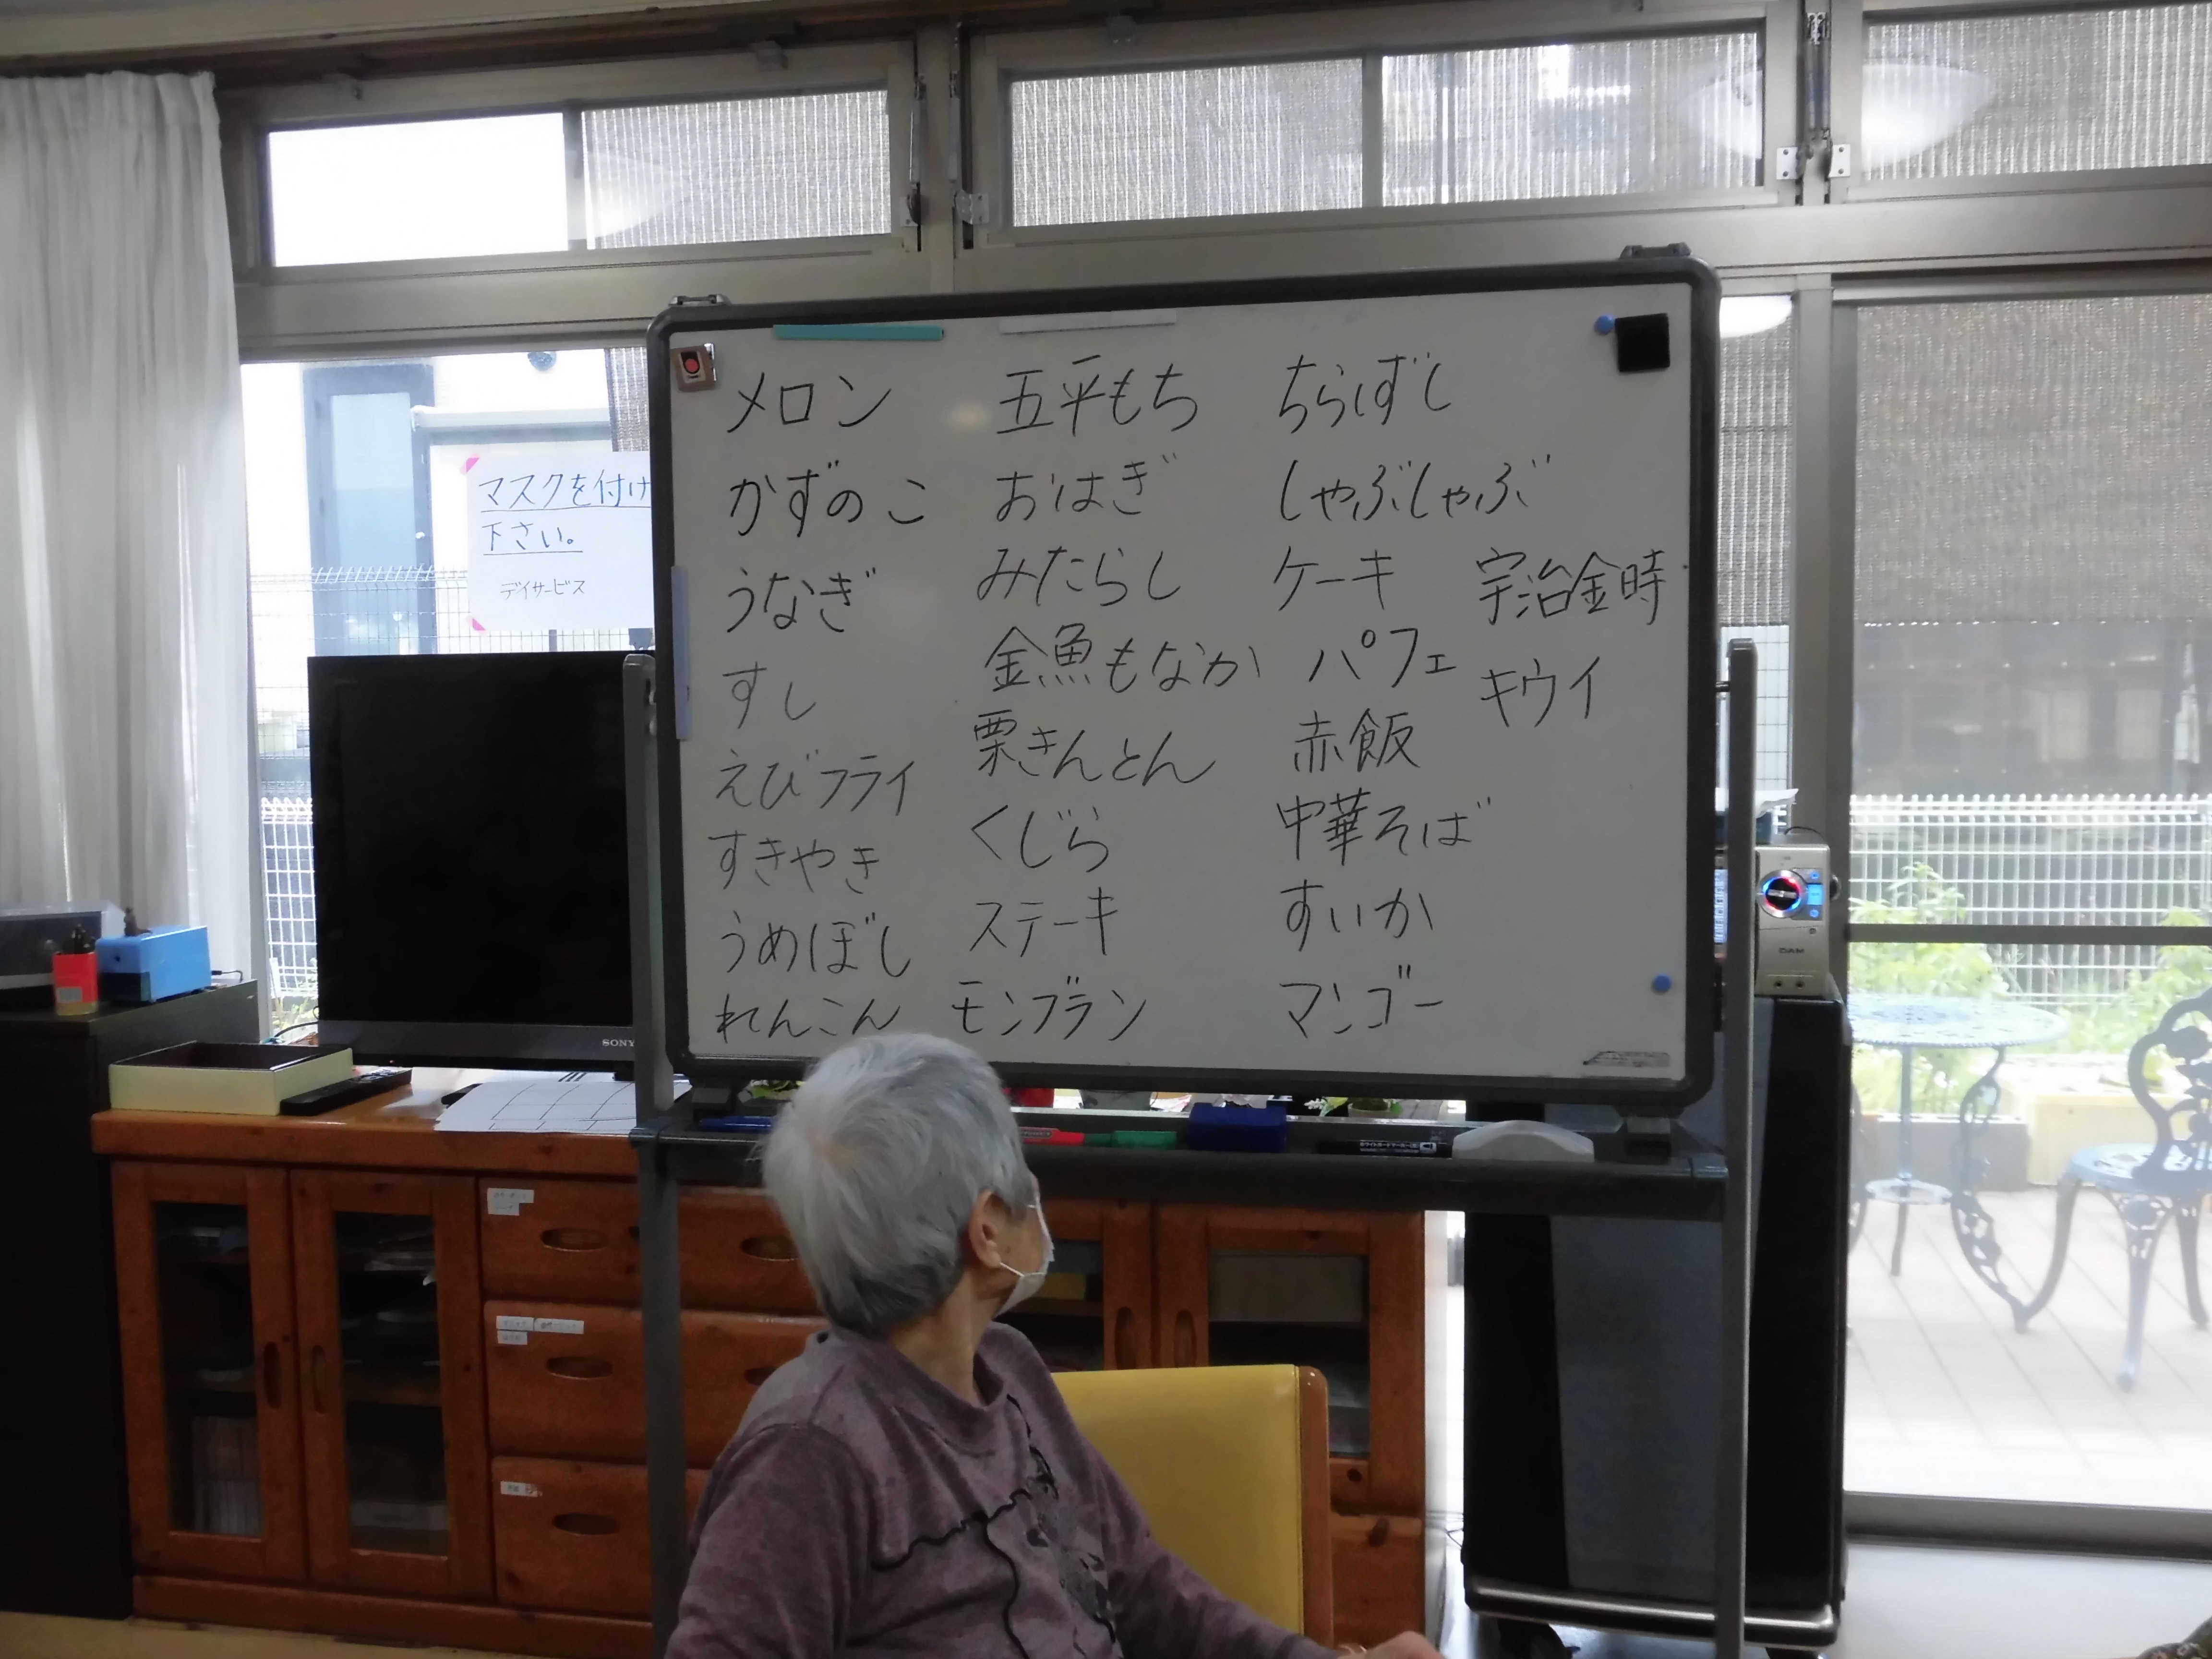 メロン
かずのこ
うなぎ
すし
えびフライ
すきやき
うめぼし
れんこん
五平もち
おはぎ
みたらし
金魚もなか
栗きんとん
くじら
ステーキ
モンブラン
ちらしずし
しゃぶしゃぶ
ケーキ
パフェ
赤飯
中華そば
すいか
マンゴー
宇治金時
キウイ
マスクを付け
下さい。
デイサービス
SONY
DAM